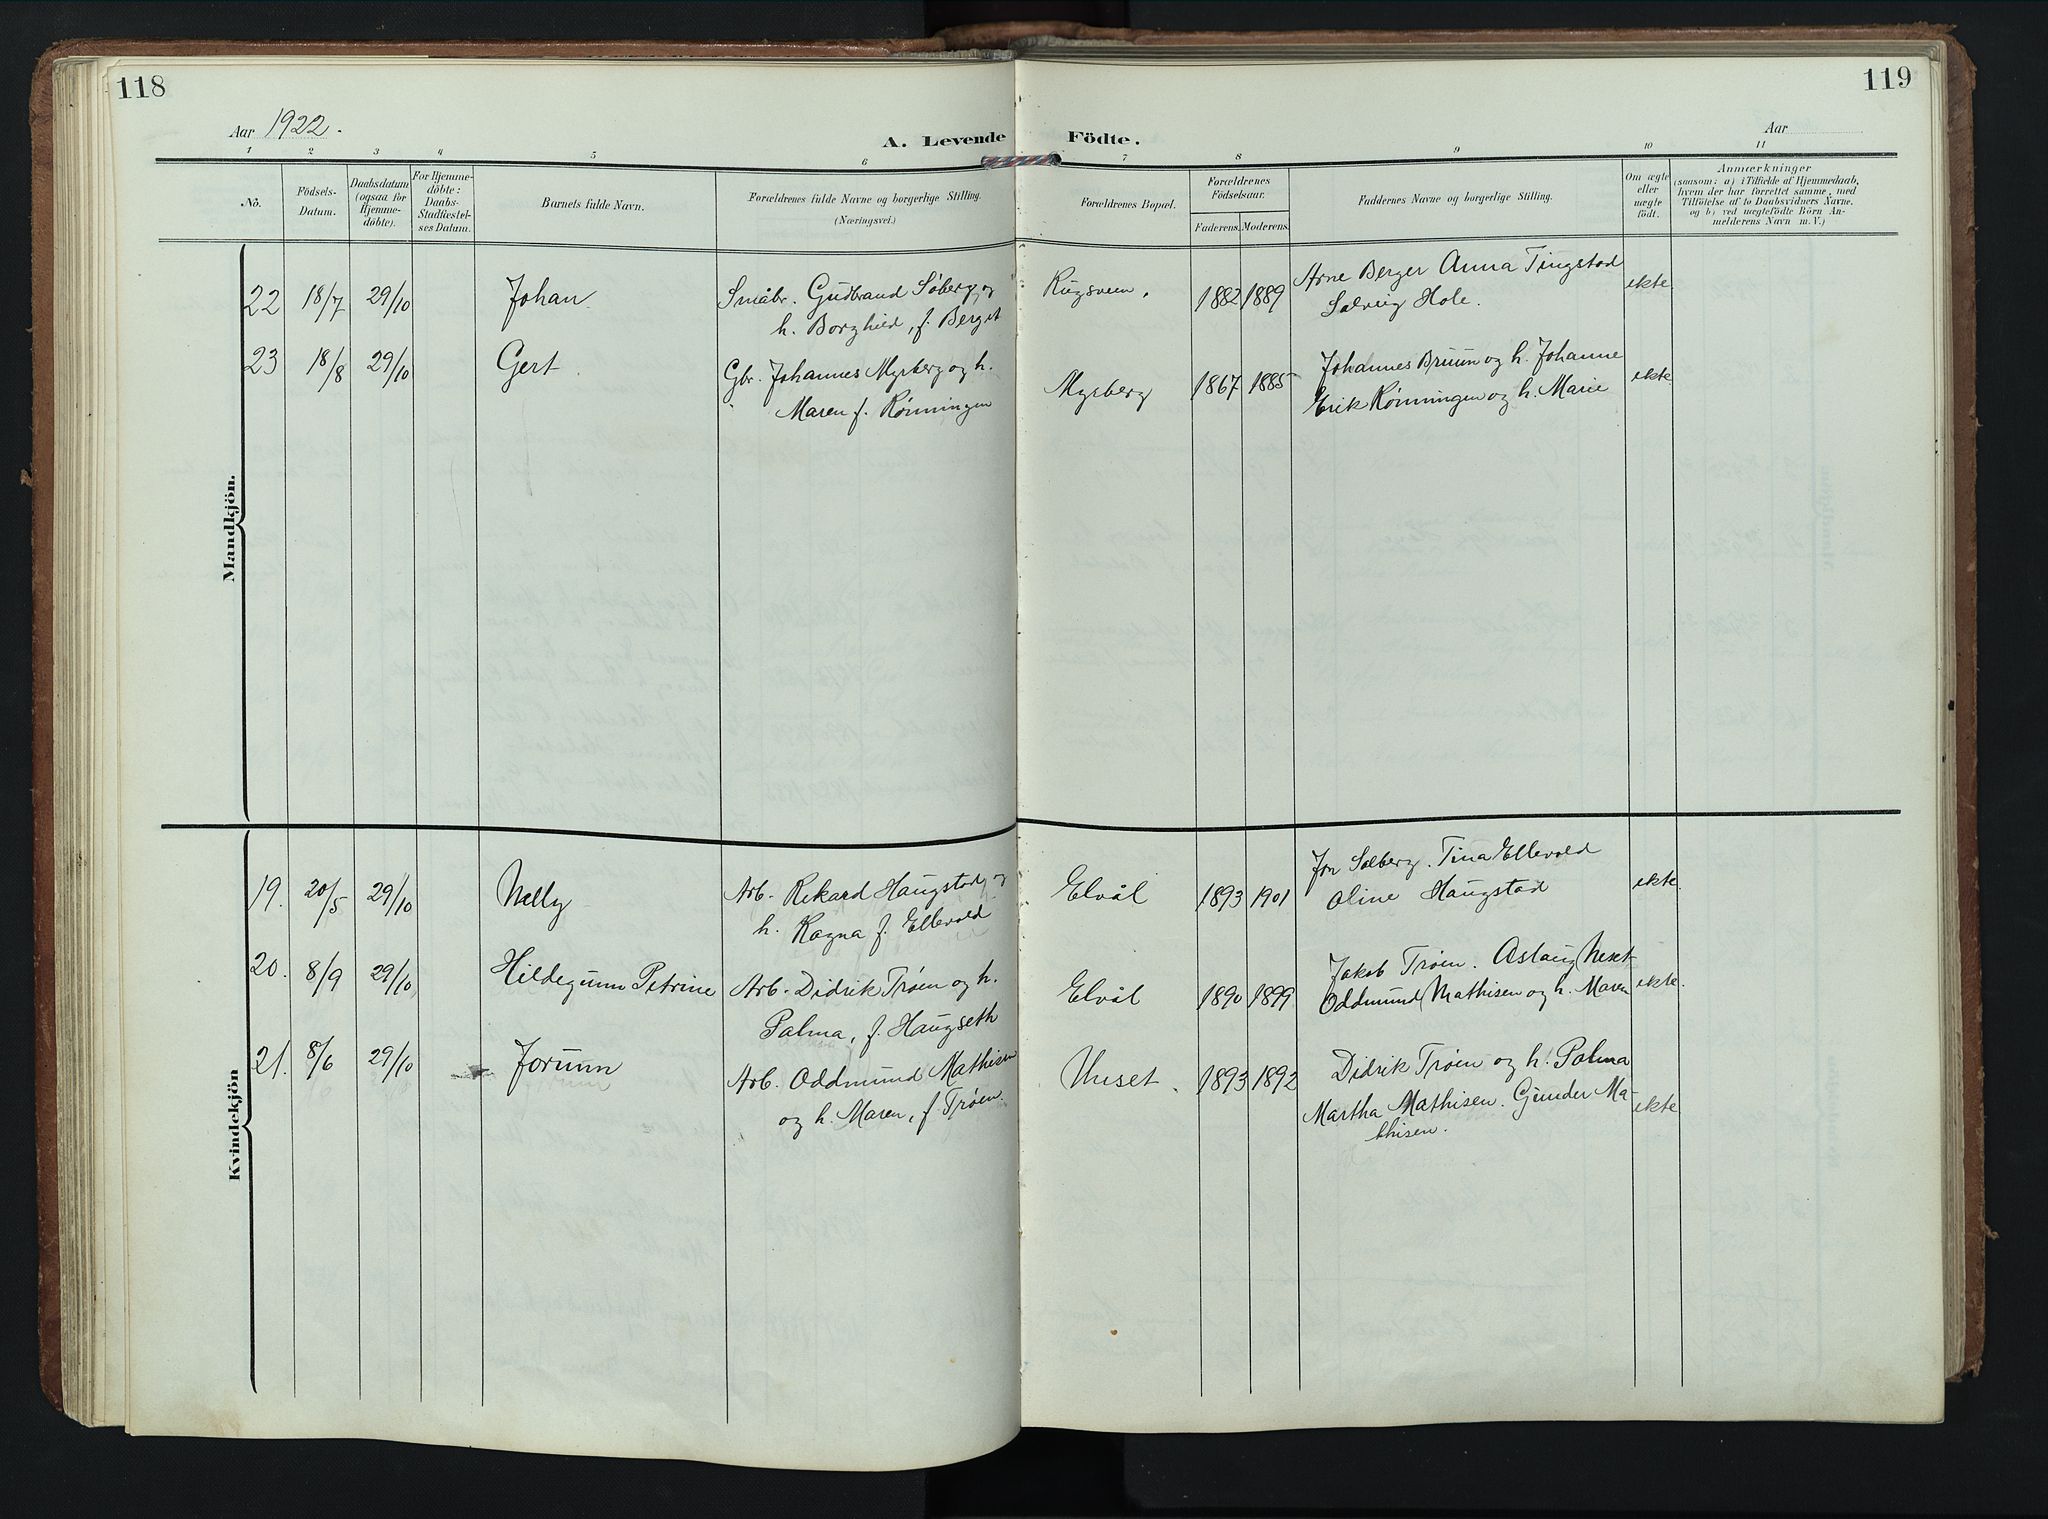 118
119
Aar 1922.
A. Levende Födte.
Aar
1 2 3 4 5 6 7 8 9 10 11
No.
Födsels-Datum.
Daabsdatum (ogsaa for Hjemme-döbte).
For Hjemme-döbte: Daabs-Stadfæstel-ses Datum.
Barnets fulde Navn.
Forældrenes fulde Navne og borgerlige Stilling. (Næringsvei.)
Forældrenes Bopæl.
Forældrenes Födselsaar.
Faderens. Moderens.
Faddernes Navne og borgerlige Stilling.
Om ægte eller uægte födt.
Anmærkninger
(saasom: a) i Tilfælde af Hjemmedaab,
hvem der har forrettet samme, med
Tilföielse af to Daabsvidners Navne.
og b) ved uægtefödte Börn An-
melderens Navn m. V.)
Mandkjön.
22 18/7 29/10 Johan Småbr. Gudbrand Søberg, og
h. Borghild, f. Berget
1882 1889 Arne Berger Anna Tingstad
Solveig Hole. ekte
23 18/8 29/10 Gert Gbr. Johannes Myrberg og h.
Maren f. Rønningen
Myrberg 1867 1885 Johannes Bruun og h. Johanne
Erik Rønningen og h. Marie ekte
Kvindekjön
19. 20/5 29/10 Nelly Arb. Rikard Haugstad, og
h. Ragna f. Ellevold
Elvål 1893 1901 Jon Solberg. Tina Ellevold
Oline Haugstad ekte.
20. 8/9 29/10 Hildegunn Petrine Arb. Didrik Trøen og h.
Palma, f. Haugseth
Elvål 1890 1899 Jakob Trøen. Aslaug Neset
Oddmund Mathisen og h. Maren ekte.
21. 8/6 29/10 Jorunn Arb. Oddmund Mathisen
og h. Maren, f. Trøen.
Unset. 1893 1892 Didrik Trøen og h. Palma
Martha Mathisen. Gunder Ma-
thisen. ekte